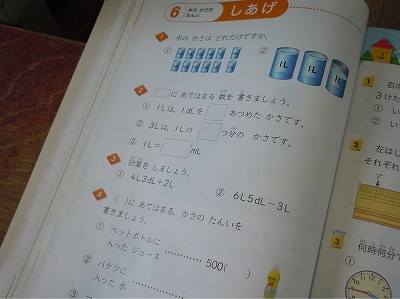 6 水の かさの たんい しあげ
1 水の かさは どれだけですか。
① ②
1L 1L 1L
2 □に あてはまる 数を 書きましょう。
① 1Lは、1dLを □ あつめた かさです。
② 3Lは、1Lの □ つ分の かさです。
③ 1L=□mL
3 計算を しましょう。
① 4L3dL+2L
② 6L5dL-3L
4 ( )に あてはまる、かさの たんいを
書きましょう。
① ペットボトルに
入った ジュース ……… 500( )
② バケツに
入った 水
1 右の
3けた
① い
② い
2 左はし
それぞれ
ア
3 何時何分で
①